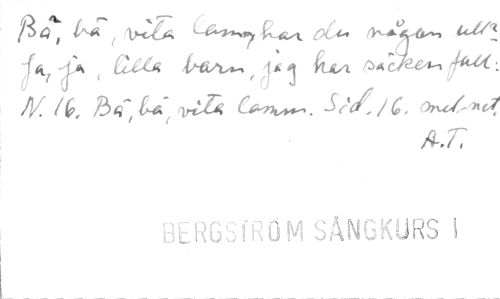 Bä, bä, vita lamm, har du någon ull?
Ja, ja, lilla barn, jag har säcken full:
N. 16. Bä, bä, vita lamm. Sid. 16. mel. not.
A.T.
BERGSTRÖM SÅNGKURS I